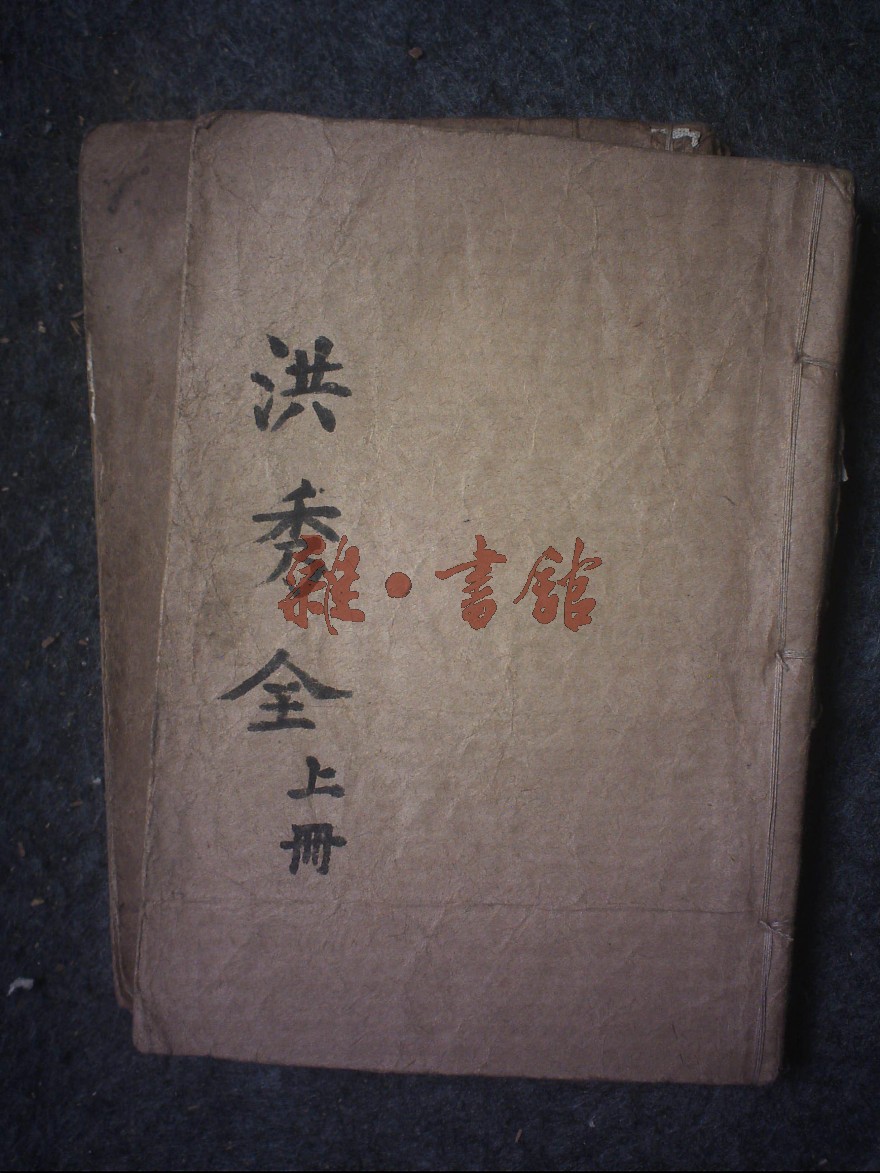 洪秀全
上冊
雜·書館